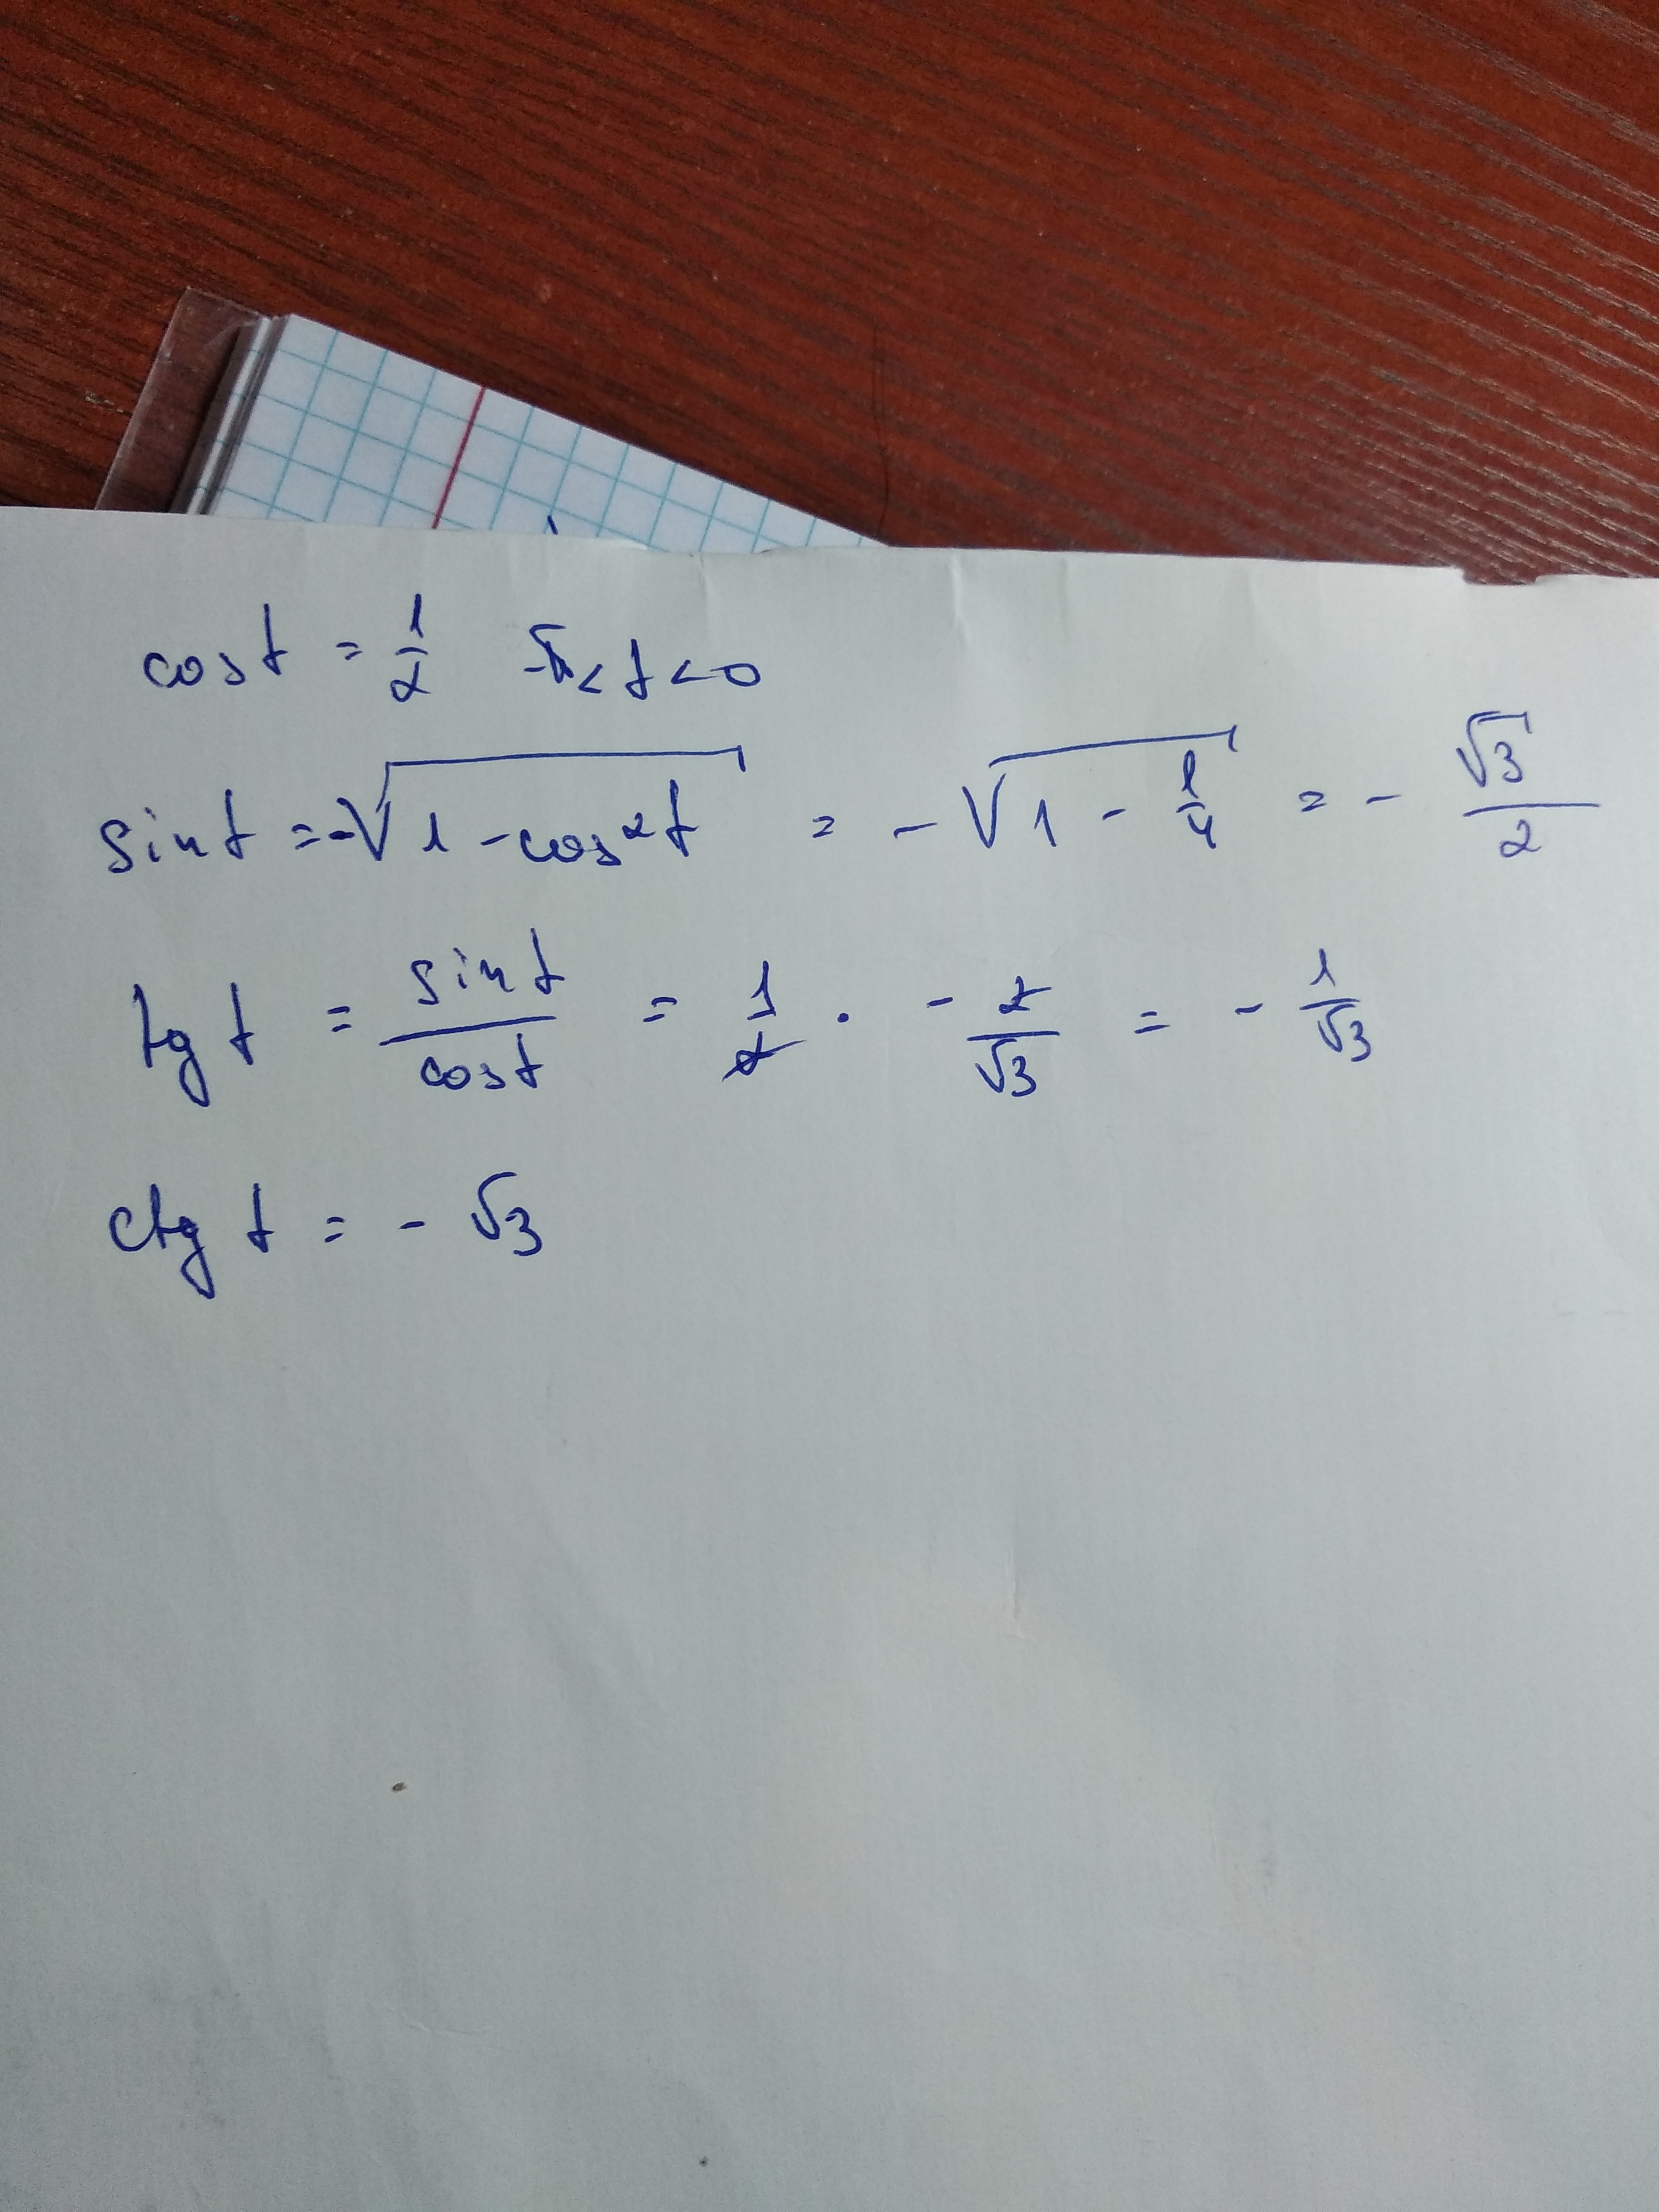 cos t = 1/2 -π < t < 0
sin t = -√(1 - cos²t) = -√(1 - 1/4) = - √3/2
tg t = sin t/cos t = 1/2 · - 2/√3 = - 1/√3
ctg t = - √3